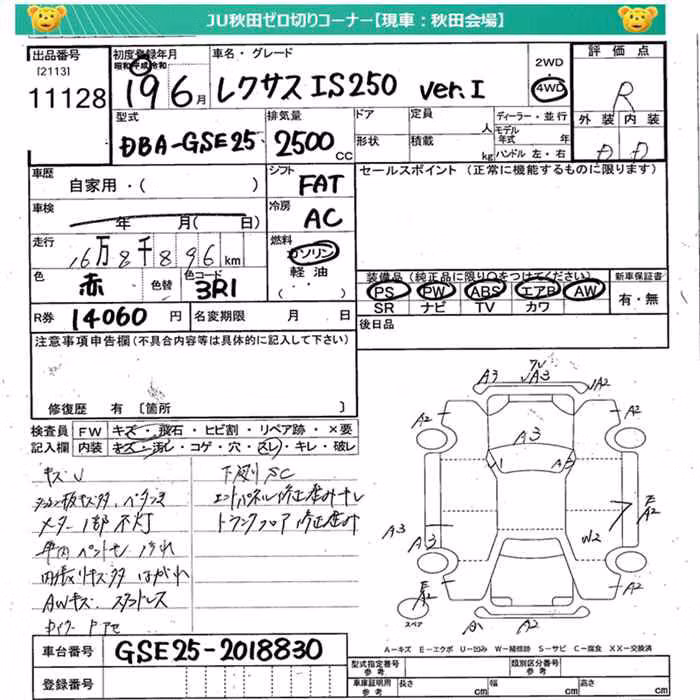 JU秋田ゼロ切りコーナー【現車：秋田会場】
出品番号
[2113]
11128
初度登録年月
昭和 平成 令和
19 6月
車名・グレード
レクサス IS250 ver.I
2WD
4WD
評価点
R
外装 内装
D D
型式
DBA-GSE25
排気量
2500 CC
ドア
形状
定員
人
積載
kg
ディーラー・並行
モデル年式 年
ハンドル 左・右
車歴
自家用・( )
シフト
FAT
セールスポイント (正常に機能するものに限ります)
車検
年 月( 日)
冷房
AC
走行
16万8千896km
燃料
ガソリン
軽油
( ・ )
色
赤
色替
色コード
3R1
装備品(純正品に限り○をつけてください)
PS PW ABS エアB AW
SR ナビ TV カワ
新車保証書
有・無
R券 14060 円
名変期限 月 日
後日品
注意事項申告欄(不具合内容等は具体的に記入して下さい)
修復歴 有 [箇所 ]
検査員
記入欄
FW キズ・飛石・ヒビ割・リペア跡・×要
内装 キズ・汚レ・コゲ・穴・スレ・キレ・破レ
メーター1部不灯
内張りキズ多 ハガレ
AWキズ
下廻り SC
トランクフロア 修正歪み
A3 A3 A2
A2 A2
A3
A3 A3
A2
W2
A2 A2
A1 A2
スペア
A－キズ E－エクボ U－凹み W－補修跡 S－サビ C－腐食 XX－交換済
車台番号 GSE25-2018830
登録番号
型式指定番号
参考
類別区分番号
参考
車庫証明用
参考
長さ cm
幅 cm
高さ cm